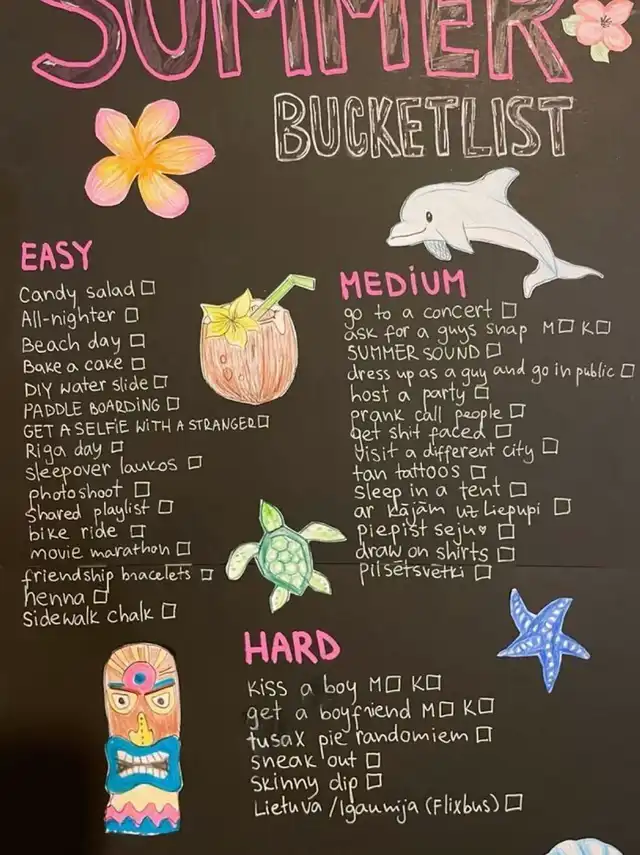 SUMMER
BUCKETLIST
EASY
Candy salad
All-nighter
Beach day
Bake a cake
DIY water slide
PADDLE BOARDING
GET A SELFIE WITH A STRANGER
Riga day
sleepover laukos
photoshoot
Shared playlist
bike ride
movie marathon
friendship bracelets
henna
Sidewalk chalk
MEDIUM
go to a concert
ask for a guys snap M K
SUMMER SOUND
dress up as a guy and go in public
host a party
prank call people
get shit faced
visit a different city
tan tattoo's
sleep in a tent
ar kājām uz Liepupi
piepist seju♥
draw on shirts
pilsētsvētki
HARD
kiss a boy M K
get a boyfriend M K
tusax pie randomiem
sneak out
skinny dip
Lietuva/Igaunija (Flixbus)